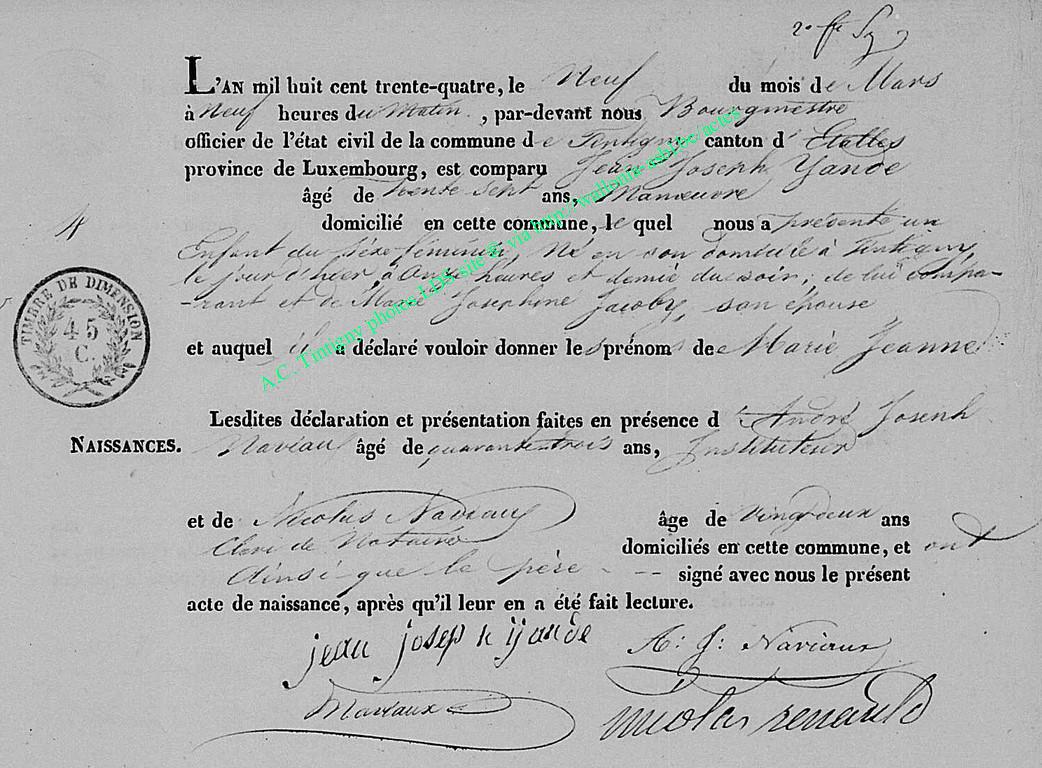 L'AN mil huit cent trente-quatre, le Neuf du mois de Mars
à Neuf heures du Matin, par-devant nous Bourgmestre
officier de l'état civil de la commune de Tintigny canton d'Etalles
province de Luxembourg, est comparu Jean Joseph Yande
âgé de trente sept ans, Manœuvre
domicilié en cette commune, le quel nous a présenté un
Enfant du séxe féminin, Né en son domicile à Tintigny,
le jour d'hier, à Onze heures et demie du soir, de lui compa-
-rant et de Marie Josephine Jacoby, son épouse
et auquel il a déclaré vouloir donner les prénoms de Marie Jeanne
TIMBRE DE DIMENSION
45
C.
Lesdites déclaration et présentation faites en présence d'André Joseph
NAISSANCES. Naviau âgé de quarante trois ans, Instituteur
et de Nicolas âge de vingt deux ans
Clerc de Notaire domiciliés en cette commune, et ont
Ainsi que le père - -- signé avec nous le présent
acte de naissance, après qu'il leur en a été fait lecture.
jean joseph yande A: J: Naviaux
nicolas renauld
A.C. Tintigny photos LDS site @ via http://wallonia-asbl.be/actes